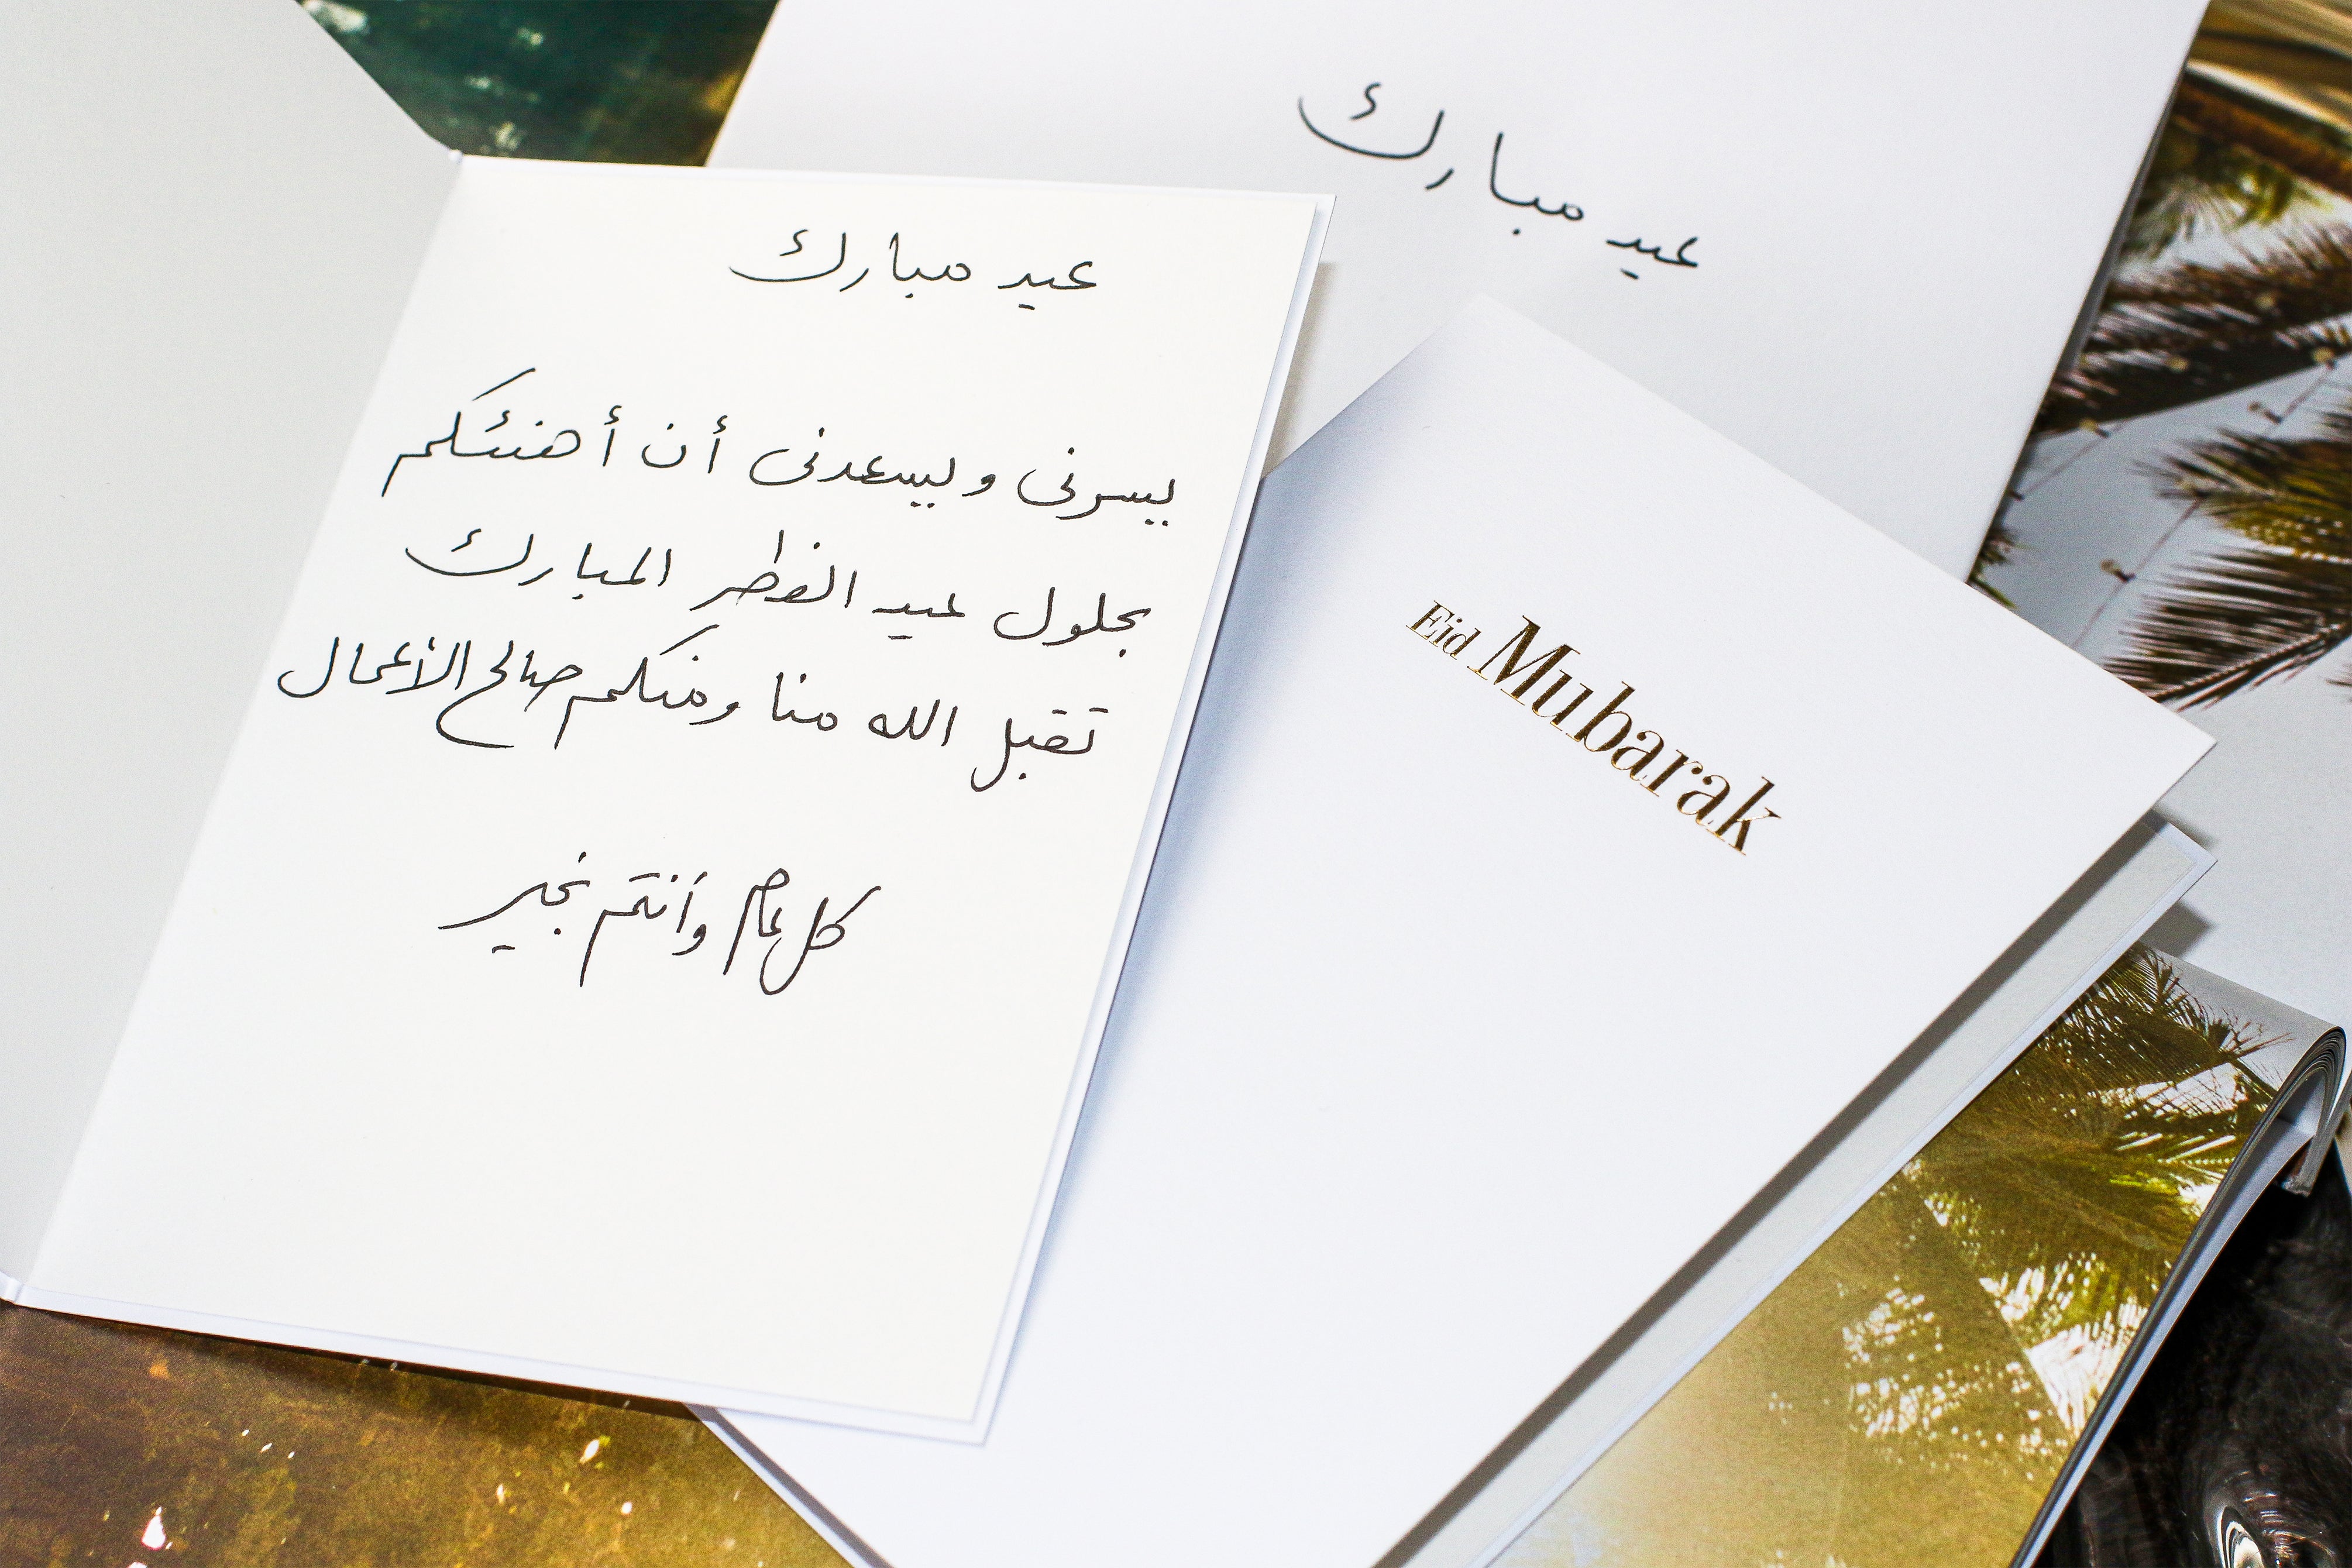 عيد مبارك
يسرنى ويسعدنى أن أهنئكم
بحلول عيد الفطر المبارك
تقبل الله منا ومنكم صالح الأعمال
كل عام وأنتم بخير
عيد مبارك
Eid Mubarak